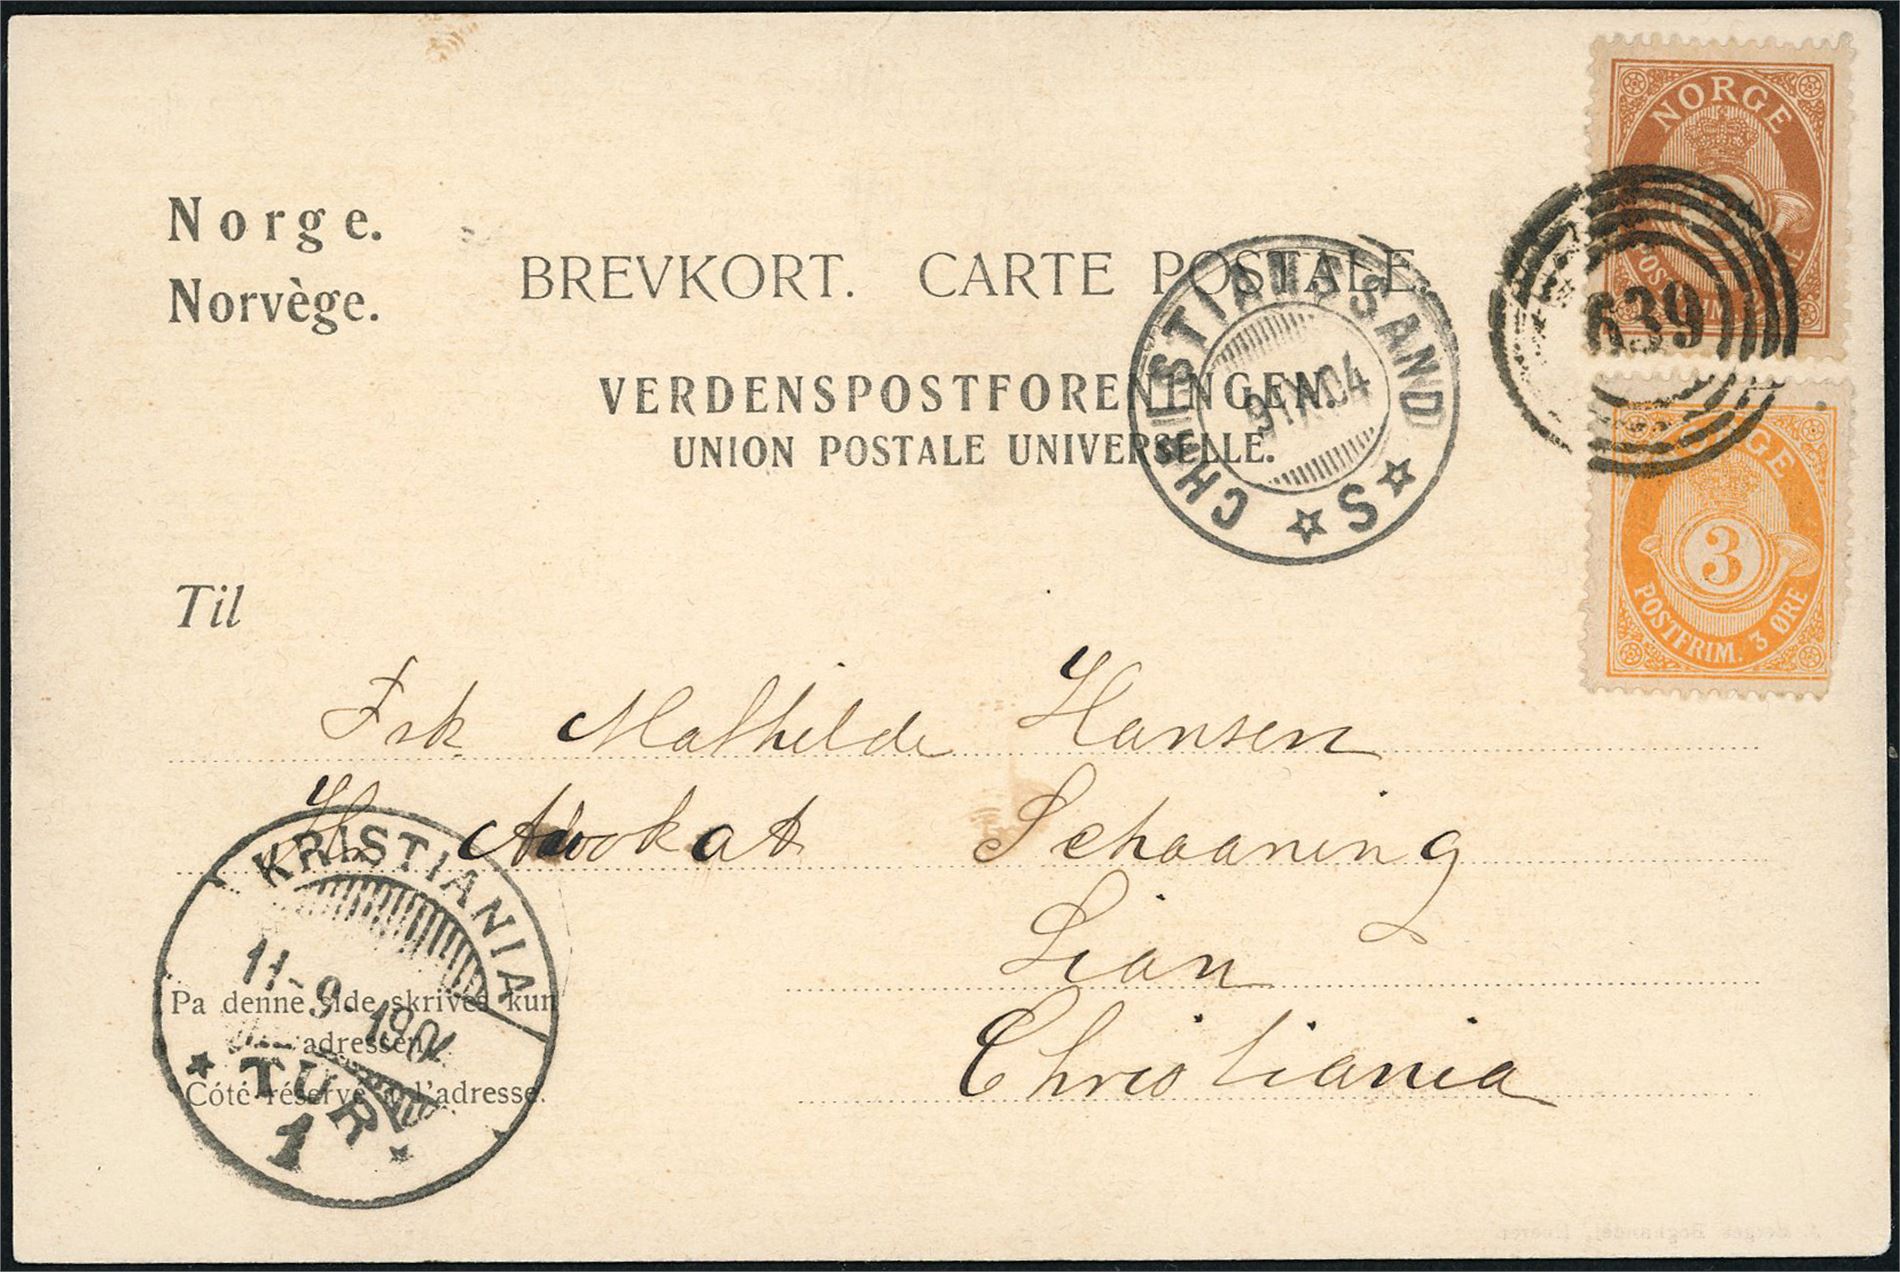 Norge.
Norvège.
BREVKORT. CARTE POSTALE.
VERDENSPOSTFORENINGEN.
UNION POSTALE UNIVERSELLE.
NORGE
639
NORGE
3
POSTFRIM. 3 ØRE
CHRISTIANSSAND S
9 IX 04
Til
Frk Mathilde Hansen
Hr Advokat Schaanning
Lian
Christiania
KRISTIANIA
11-9 1904
TUR
1
Pa denne side skrives kun
adressen.
Côté réservé à l'adresse.